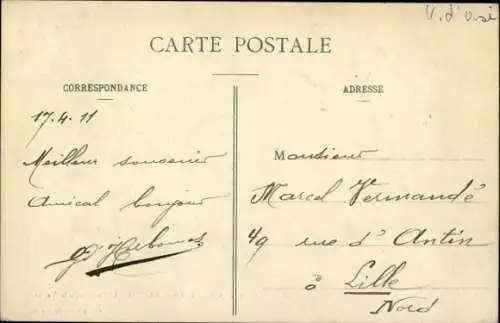 V. d'Oise
CARTE POSTALE
CORRESPONDANCE
ADRESSE
17.4.11
Monsieur
Meilleur souvenir
Marcel Vermandé
Amical bonjour
49 rue d'Antin
à Lille
Nord